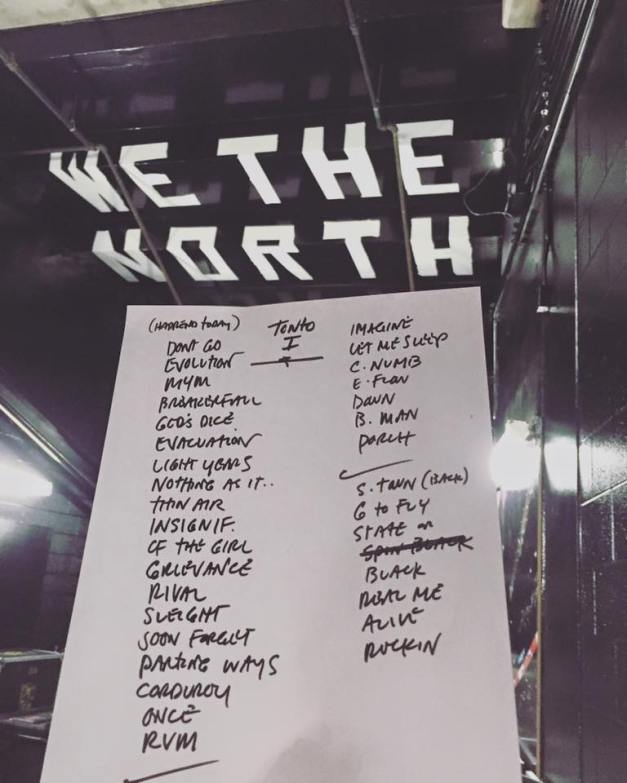 WE THE
NORTH
(HAPPENED TODAY)
DONT GO
EVOLUTION
MYM
BREAKERFALL
GODS DICE
EVACUATION
LIGHT YEARS
NOTHING AS IT..
THIN AIR
INSIGNIF.
OF THE GIRL
GRIEVANCE
RIVAL
SLEIGHT
SOON FORGET
PARTING WAYS
CORDUROY
ONCE
RVM
TONTO
I
IMAGINE
LET ME SLEEP
C. NUMB
E. FLOW
DAWN
B. MAN
PORCH
S. TOWN (BACK)
G TO FLY
STATE OR
SPIN BLACK
BLACK
REAL ME
ALIVE
ROCKIN